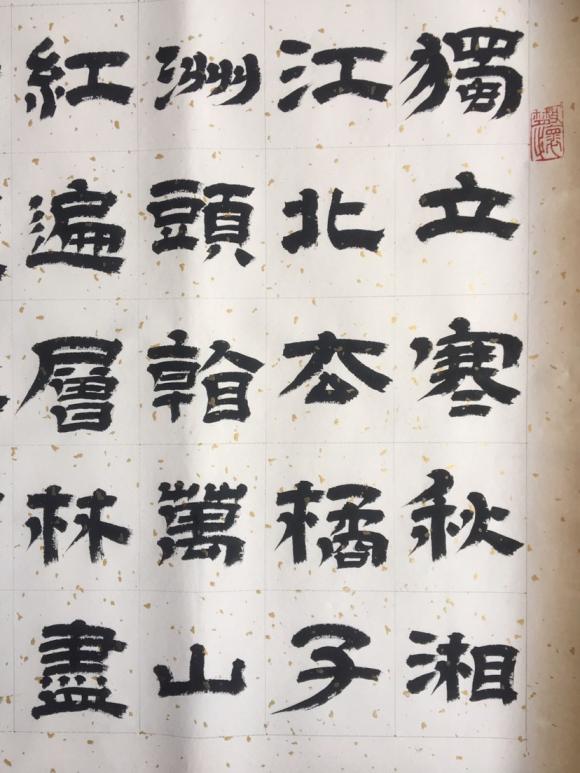 獨立寒秋湘
江北厺橘子
洲頭看萬山
紅遍層林盡